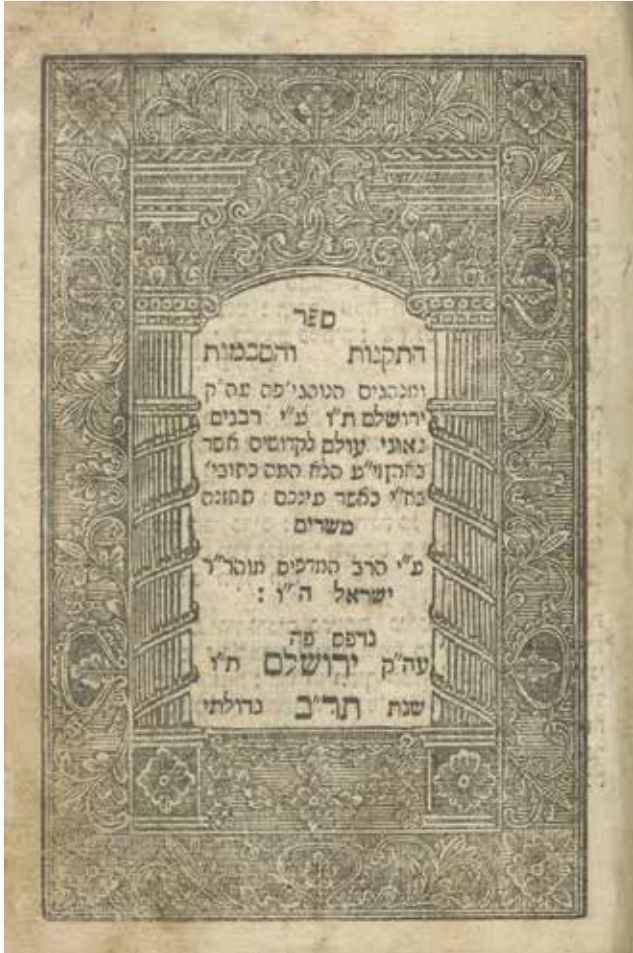 ספר
התקנות והסכמות
ומנהגים הנוהגי׳ פה עה״ק
ירושלם ת״ו ע״י רבנים
גאוני עולם לקדושים אשר
הלא המה כתובי׳
כאשר עיניכם תחזנה
משרים
ע״י הרב המדפיס מוהר״ר
ישראל ה״ו :
נדפס פה
עה״ק ירושלם ת״ו
שנת תר״ב גדולתי